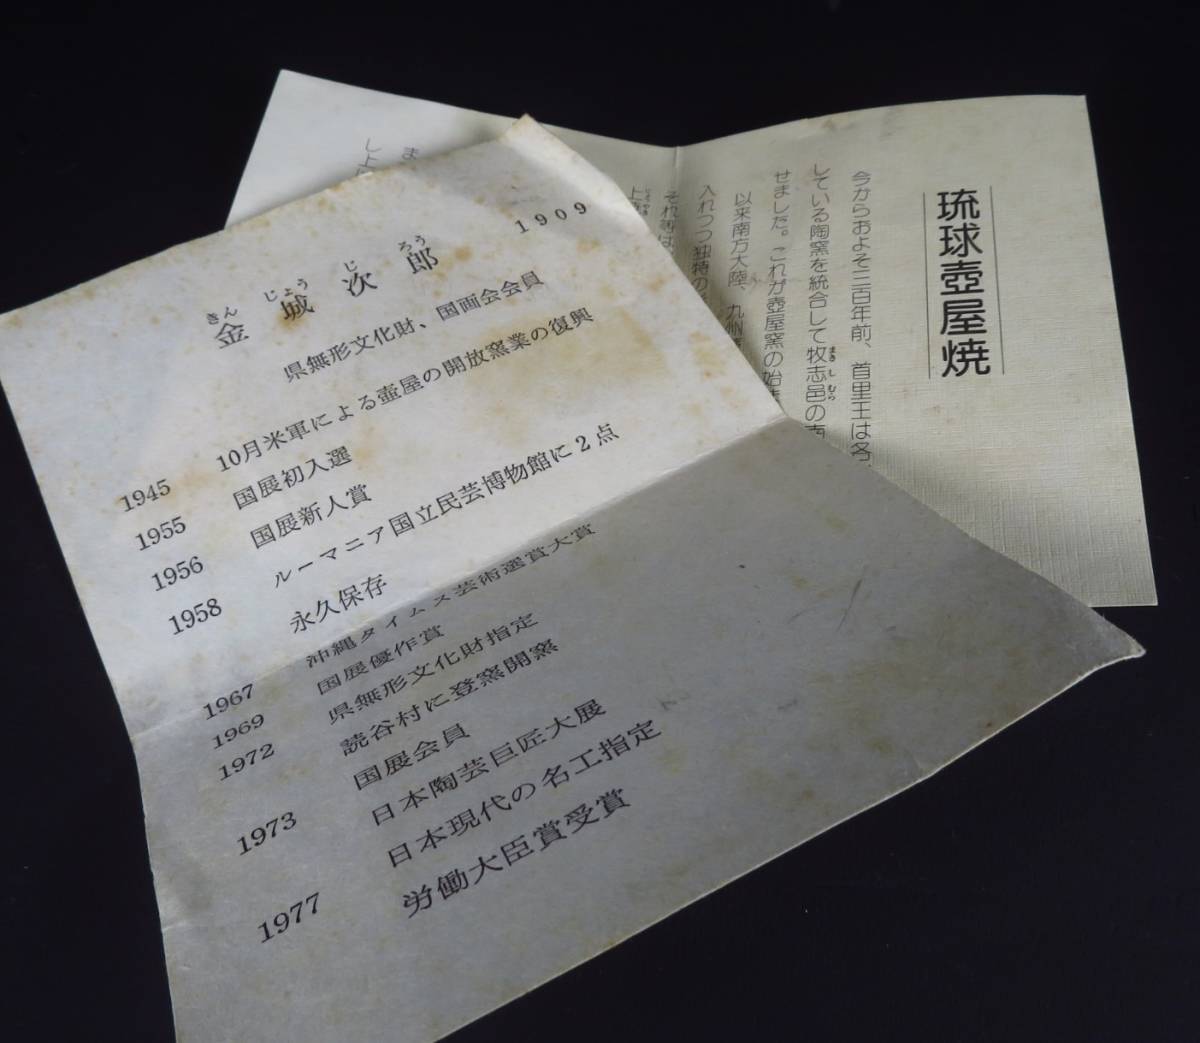 1909
きん じょう じ ろう
金 城 次 郎
県無形文化財、国画会会員
1945 10月米軍による壷屋の開放窯業の復興
1955 国展初入選
1956 国展新人賞
1958 ルーマニア国立民芸博物館に2点
永久保存
1967 沖縄タイムス芸術選賞大賞
1969 国展優作賞
1972 県無形文化財指定
読谷村に登窯開窯
1973 国展会員
日本陶芸巨匠大展
日本現代の名工指定
1977 労働大臣賞受賞
琉球壺屋焼
今からおよそ三百年前、首里王は各
している陶窯を統合して牧志邑の南
まきしむら
せました。これが壺屋窯の始ま
以来南方大陸、九州
入れつつ独特の
それ等は
じょうやき
上
ま
し上